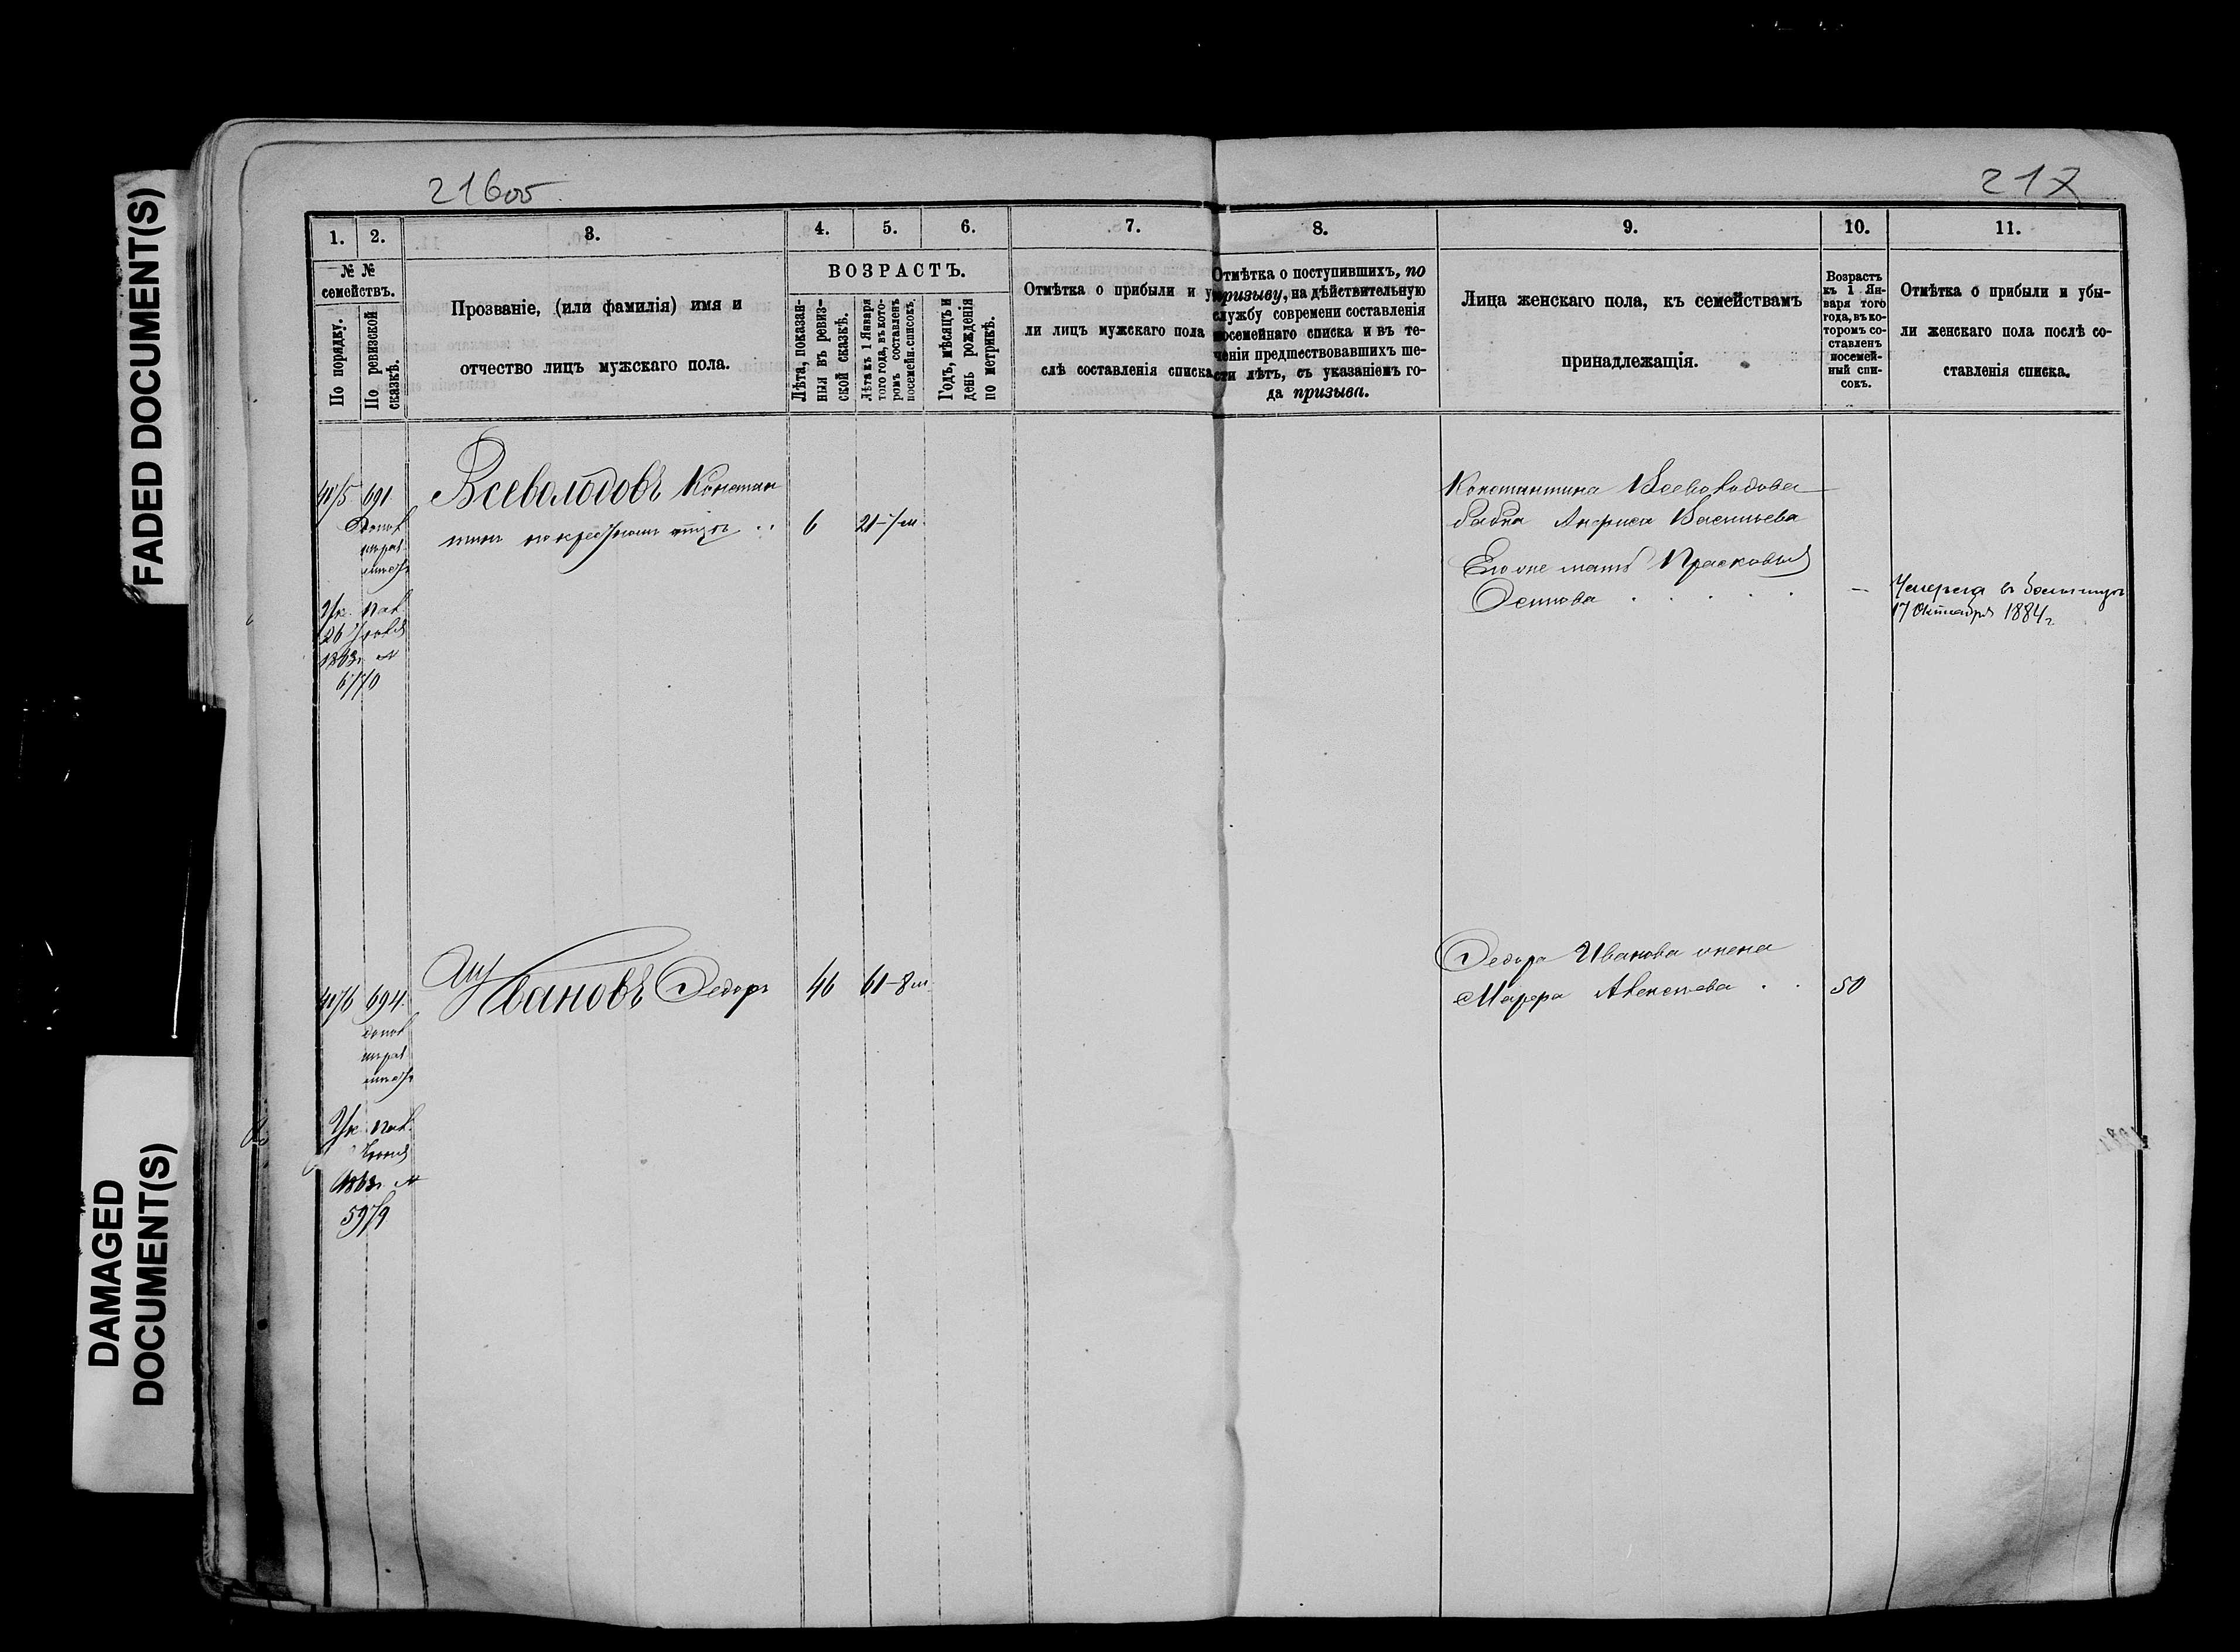 FADED DOCUMENT(S)
DAMAGED
DOCUMENT(S)
216об
217
1.
2.
3.
4.
5.
6.
7.
8.
9.
10.
11.
№ №
семействъ.
По порядку.
По ревизской
сказкѣ.
Прозваніе, (или фамилія) имя и
отчество лицъ мужскаго пола.
ВОЗРАСТЪ.
Лѣта, показан-
ныя въ ревиз-
ской сказкѣ.
Лѣта къ 1 Января
того года, въ кото-
ромъ составленъ
посемейн. списокъ.
Годъ, мѣсяцъ и
день рожденія
по метрикѣ.
Отмѣтка о прибыли и у
ли лицъ мужскаго пола
слѣ составленія списка
Отмѣтка о поступившихъ, по
призыву, на дѣйствительную
службу современи составленія
посемейнаго списка и въ те-
ченіи предшествовавшихъ ше-
сти лѣтъ, съ указаніемъ го-
да призыва.
Лица женскаго пола, къ семействамъ
принадлежащія.
Возрастъ
къ 1 Ян-
варя того
года, въ ко-
торомъ со-
ставленъ
посемей-
ный спи-
сокъ.
Отмѣтка о прибыли и убы-
ли женскаго пола послѣ со-
ставленія списка.
691
Всеволодовъ Констан
тин по крестном отцѣ
6
21-7 м.
Константина Всеволодова
бабка Анфиса Васильева
Его же мать Прасковья
Осипова
—
Умерла в больницѣ
17 Октября 1884 г
Ук. Пал.
26 Іюля
1863 г. №
6770
694.
Ивановъ Федоръ
46
61-8 м
Федора Иванова жена
Марфа Алексѣева
50
Ук. Пал.
1863 г. №
5979